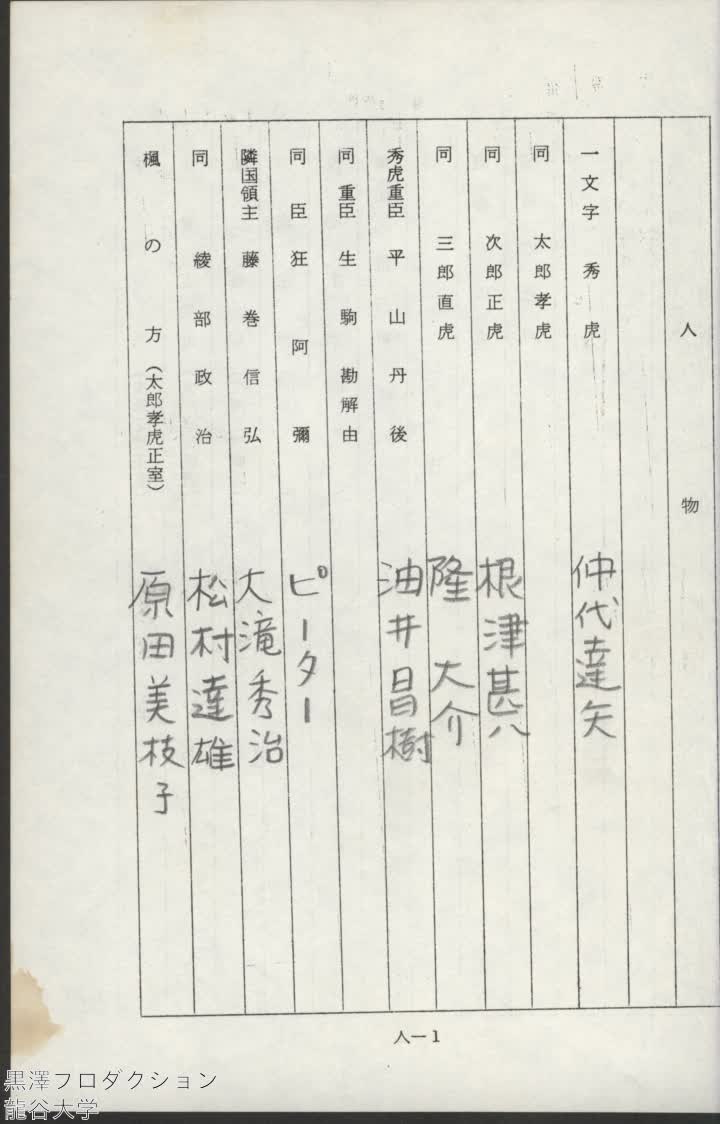 人物
一文字秀虎 仲代達矢
同 太郎孝虎
同 次郎正虎 根津甚八
同 三郎直虎 隆大介
秀虎重臣 平山丹後 油井昌樹
同重臣 生駒勘解由
同臣 狂阿彌 ピーター
隣国領主 藤巻信弘 大滝秀治
同 綾部政治 松村達雄
楓の方(太郎孝虎正室) 原田美枝子
人―1
黒澤プロダクション
龍谷大学